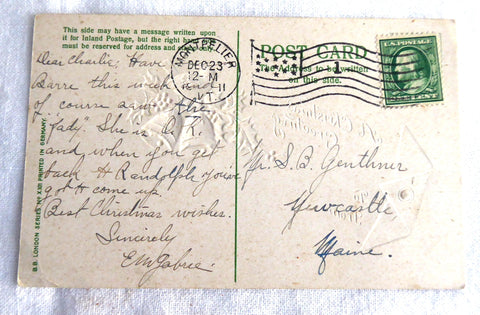 This side may have a message written upon
it for Inland Postage, but the right hand
must be reserved for address and
POST CARD
The Address to be written
on this side.
MONTPELIER
DEC 23
12-M
11
VT.
1
U.S. POSTAGE
Dear Charlie, Have
Barre this week and
of course saw the
"Lady". She is O.K.
and when you get
back to Randolph you've
got to come up.
Best Christmas wishes.
Sincerely
Mr. S. B. Genthner
Newcastle,
Maine.
B.B. LONDON SERIES No X 331 PRINTED IN GERMANY.
A Christmas
Greeting